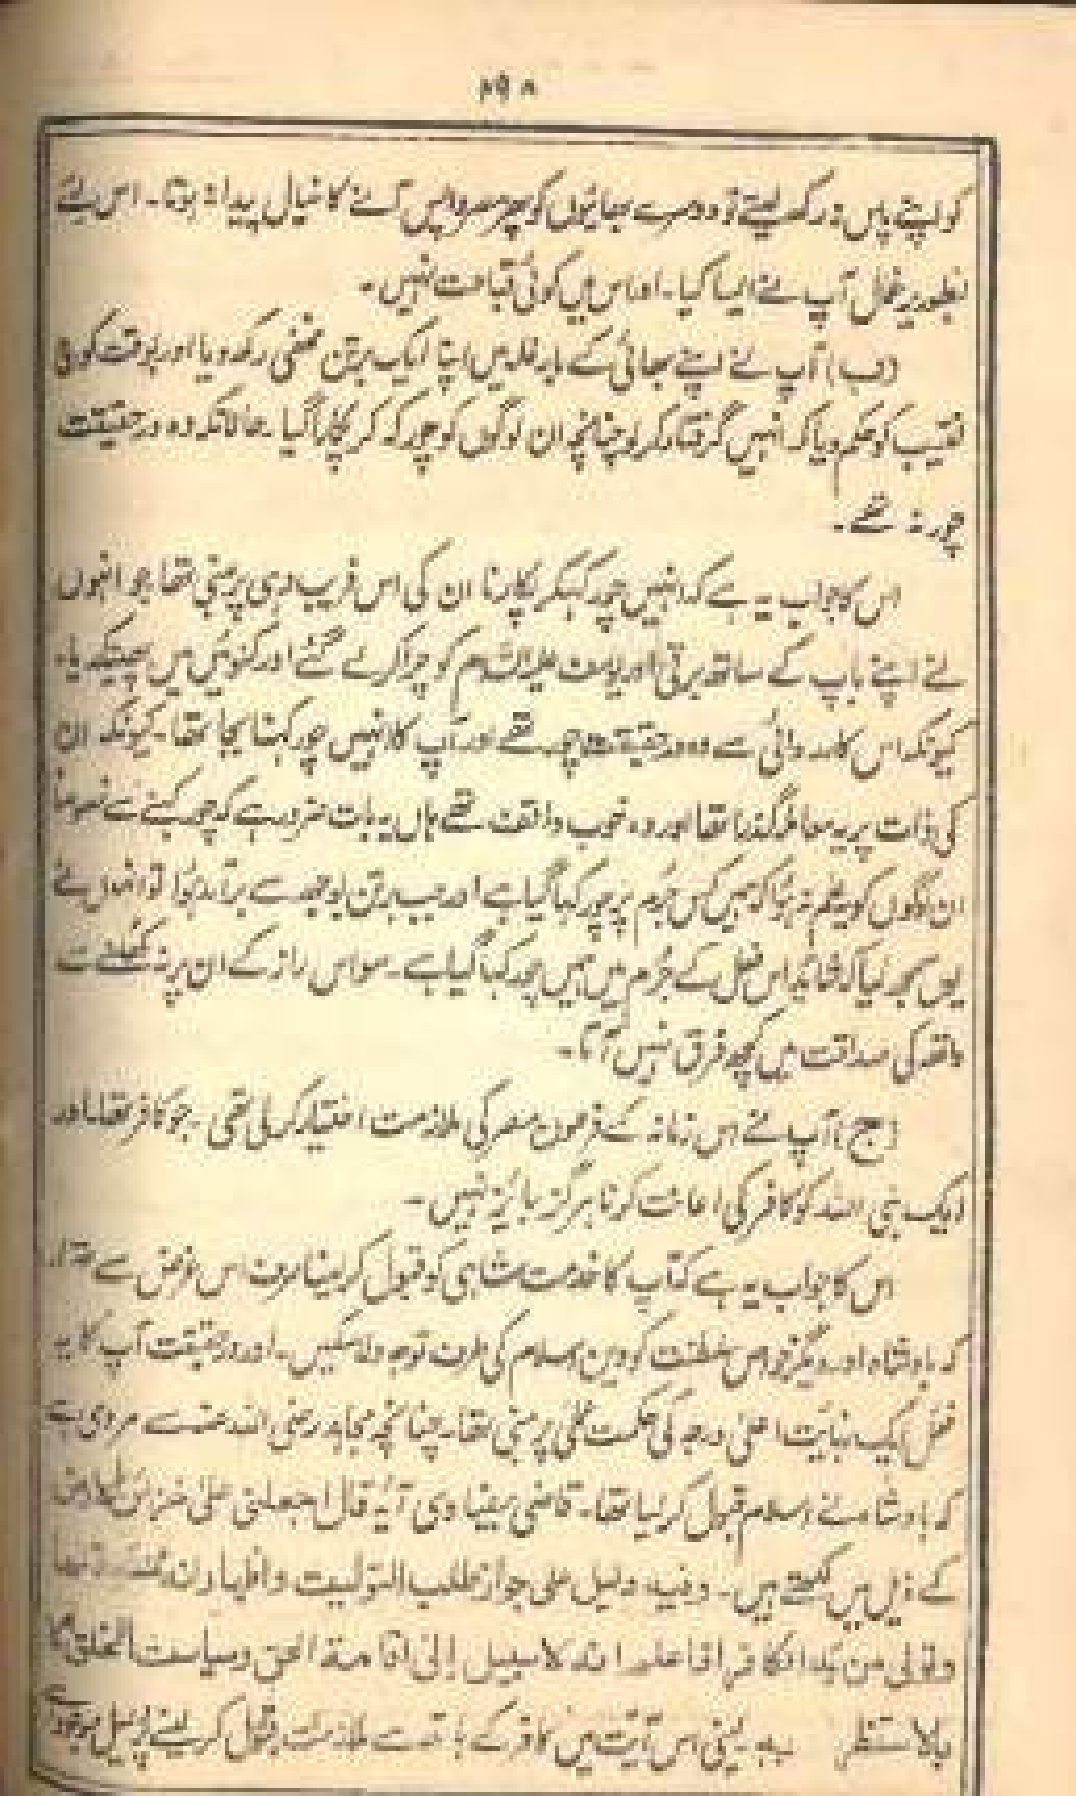 ۲۹۸
کو اپنے پاس نہ رکھ لیتے تو دوسرے بھائیوں کو پھر مصر واپس آنے کا خیال پیدا نہ ہوتا۔ اس لئے
بطور یرغمال آپ نے ایسا کیا۔ اور اس میں کوئی قباحت نہیں۔
(ب) آپ نے اپنے بھائی کے بار غلہ میں اپنا ایک برتن مخفی رکھ دیا اور بوقت کوچ
نقیب کو حکم دیا کہ انہیں گرفتار کر لو چنانچہ ان لوگوں کو چور کہہ کر پکارا گیا۔ حالانکہ وہ درحقیقت
چور نہ تھے۔
اس کا جواب یہ ہے کہ انہیں چور کہکر پکارنا ان کی اس فریب دہی پر مبنی تھا جو انہوں
نے اپنے باپ کے ساتھ برتی اور یوسف علیہ السلام کو چرا کر لے گئے اور کنوئیں میں پھینک دیا۔
کیونکہ اس کارروائی سے وہ درحقیقت چور تھے اور آپ کا انہیں چور کہنا بجا تھا۔ کیونکہ ان
کی ذات پر یہ معاملہ گذرا تھا اور وہ خوب واقف تھے ہاں یہ بات ضرور ہے کہ چور کہنے سے
ان لوگوں کو یہ علم نہ ہوا کہ ہمیں کس جرم پر چور کہا گیا ہے اور جب برتن بوجھ سے برآمد ہوا تو انہوں نے
یوں سمجھ لیا کہ شائد اس فعل کے جرم میں ہمیں چور کہا گیا ہے۔ سو اس راز کے ان پر نہ کھلنے سے
واقعہ کی صداقت میں کچھ فرق نہیں آتا۔
(ج) آپ نے اس زمانہ کے فرعون مصر کی ملازمت اختیار کر لی تھی۔ جو کافر تھا۔ اور
ایک نبی اللہ کو کافر کی اعانت کرنا ہرگز جائز نہیں۔
اس کا جواب یہ ہے کہ آپ کا خدمت شاہی کو قبول کر لینا صرف اس غرض سے تھا
کہ بادشاہ اور دیگر خواص سلطنت کو دین اسلام کی طرف توجہ دلا سکیں۔ اور درحقیقت آپ کا یہ
فعل ایک نہایت اعلیٰ درجہ کی حکمت عملی پر مبنی تھا۔ چنانچہ مجاہد رضی اللہ عنہ سے مروی ہے
کہ بادشاہ نے اسلام قبول کر لیا تھا۔ قاضی بیضاوی آیہ قال اجعلنی علی خزائن الارض
کے ذیل میں لکھتے ہیں۔ وفیہ دلیل علی جواز طلب التولیت واظہار
من ید الکافر اذا علم انہ لا سبیل الی اقامۃ الحق وسیاست الخلق الا
بالاستظہار بہ یعنی اس آیت میں کافر کے ہاتھ سے ملازمت قبول کر لینے پر دلیل موجود ہے